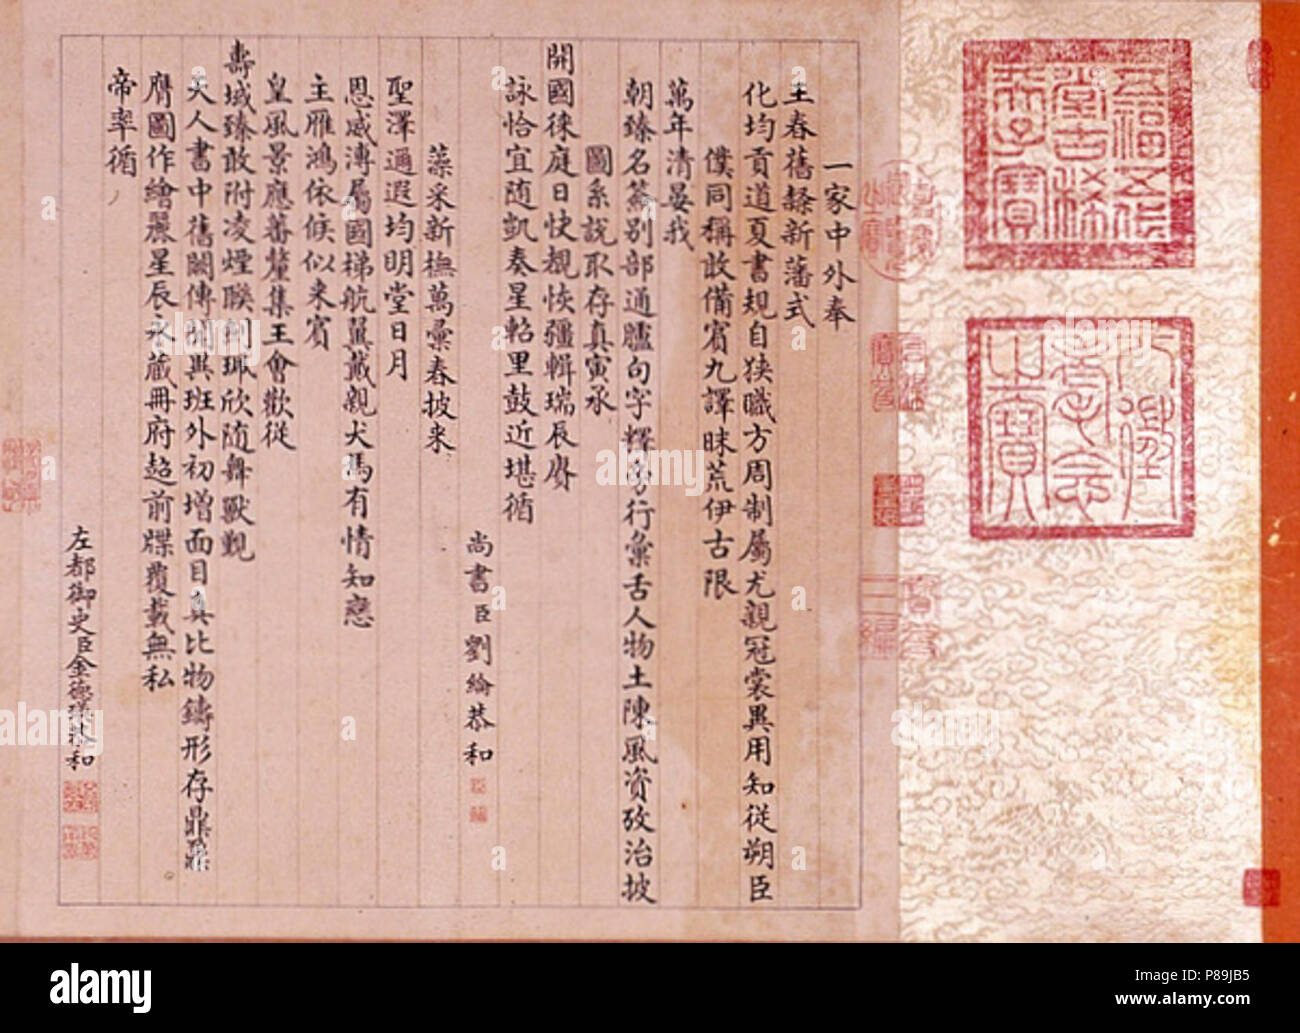 一家中外奉
王春舊隸新藩式
化均貢道夏書規自狹職方周制屬尤親冠裳異用知從朔臣
僕同稱敢備賓九譯昧荒伊古限
萬年清晏我
朝臻名籌別部通臚句字釋旁行彙舌人物土陳風資攷治披
圖系說取存真寅承
開國徠庭日快覩恢疆輯瑞辰賡
詠恰宜随凱奏星軺里鼓近堪循
尚書臣劉綸恭和
藻采新撫萬彙春披来
聖澤遍遐均明堂日月
恩威溥屬國梯航翼戴親犬馬有情知戀
主雁鴻依候似来賓
皇風景應蕃釐集王會歡從
壽域臻敢附凌煙聯劍珮欣随舞獸觀
天人書中舊闕傳聞異班外初增面目真比物鑄形存鼎鼐
膺圖作繪麗星辰永藏冊府超前牒覆載無私
帝率循
左都御史臣金德瑛恭和
五福五代堂古稀天子寶
八徵耄念之寶
alamy
a
alamy
Image ID: P89JB5
www.alamy.com